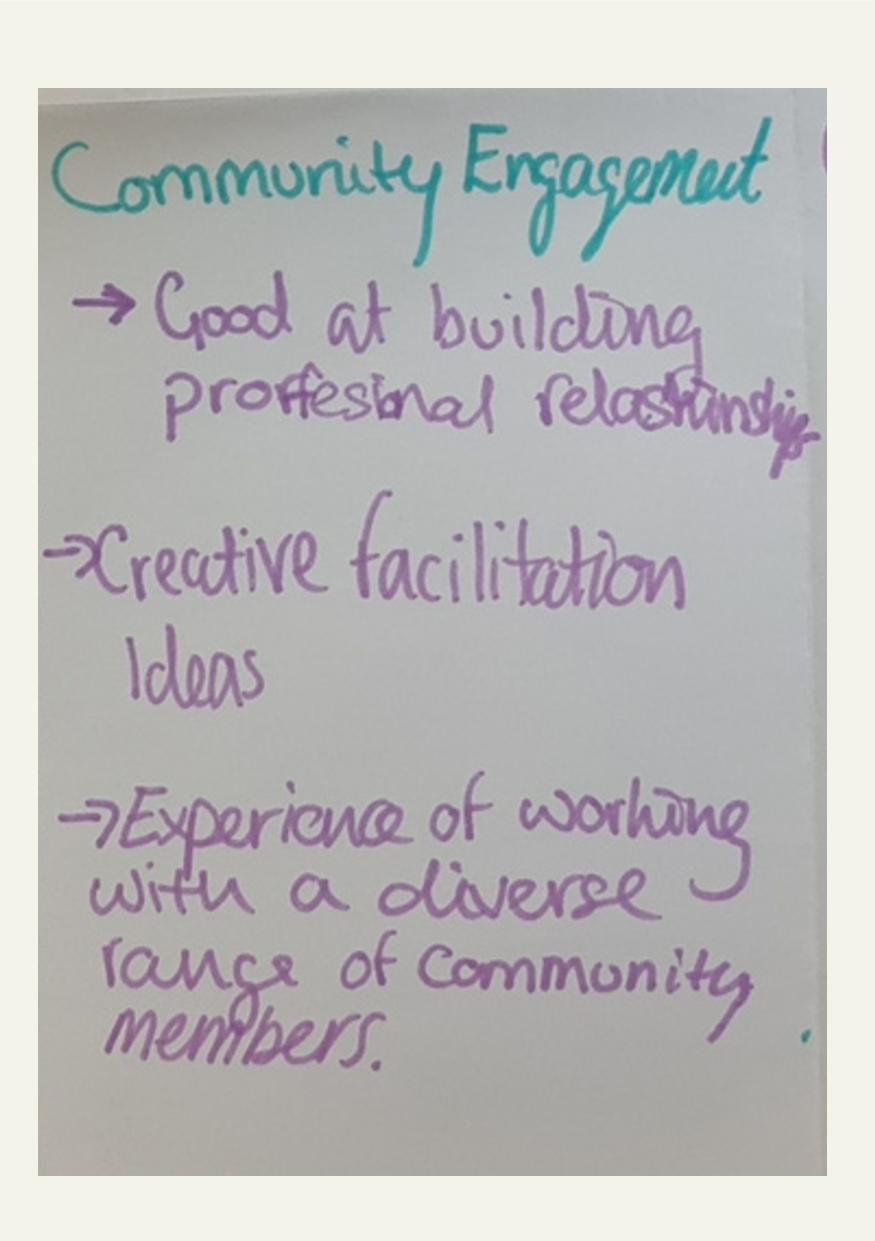 Community Engagement
→ Good at building
proffesional relationships
→ Creative facilitation
Ideas
→ Experience of working
with a diverse
range of community
members.